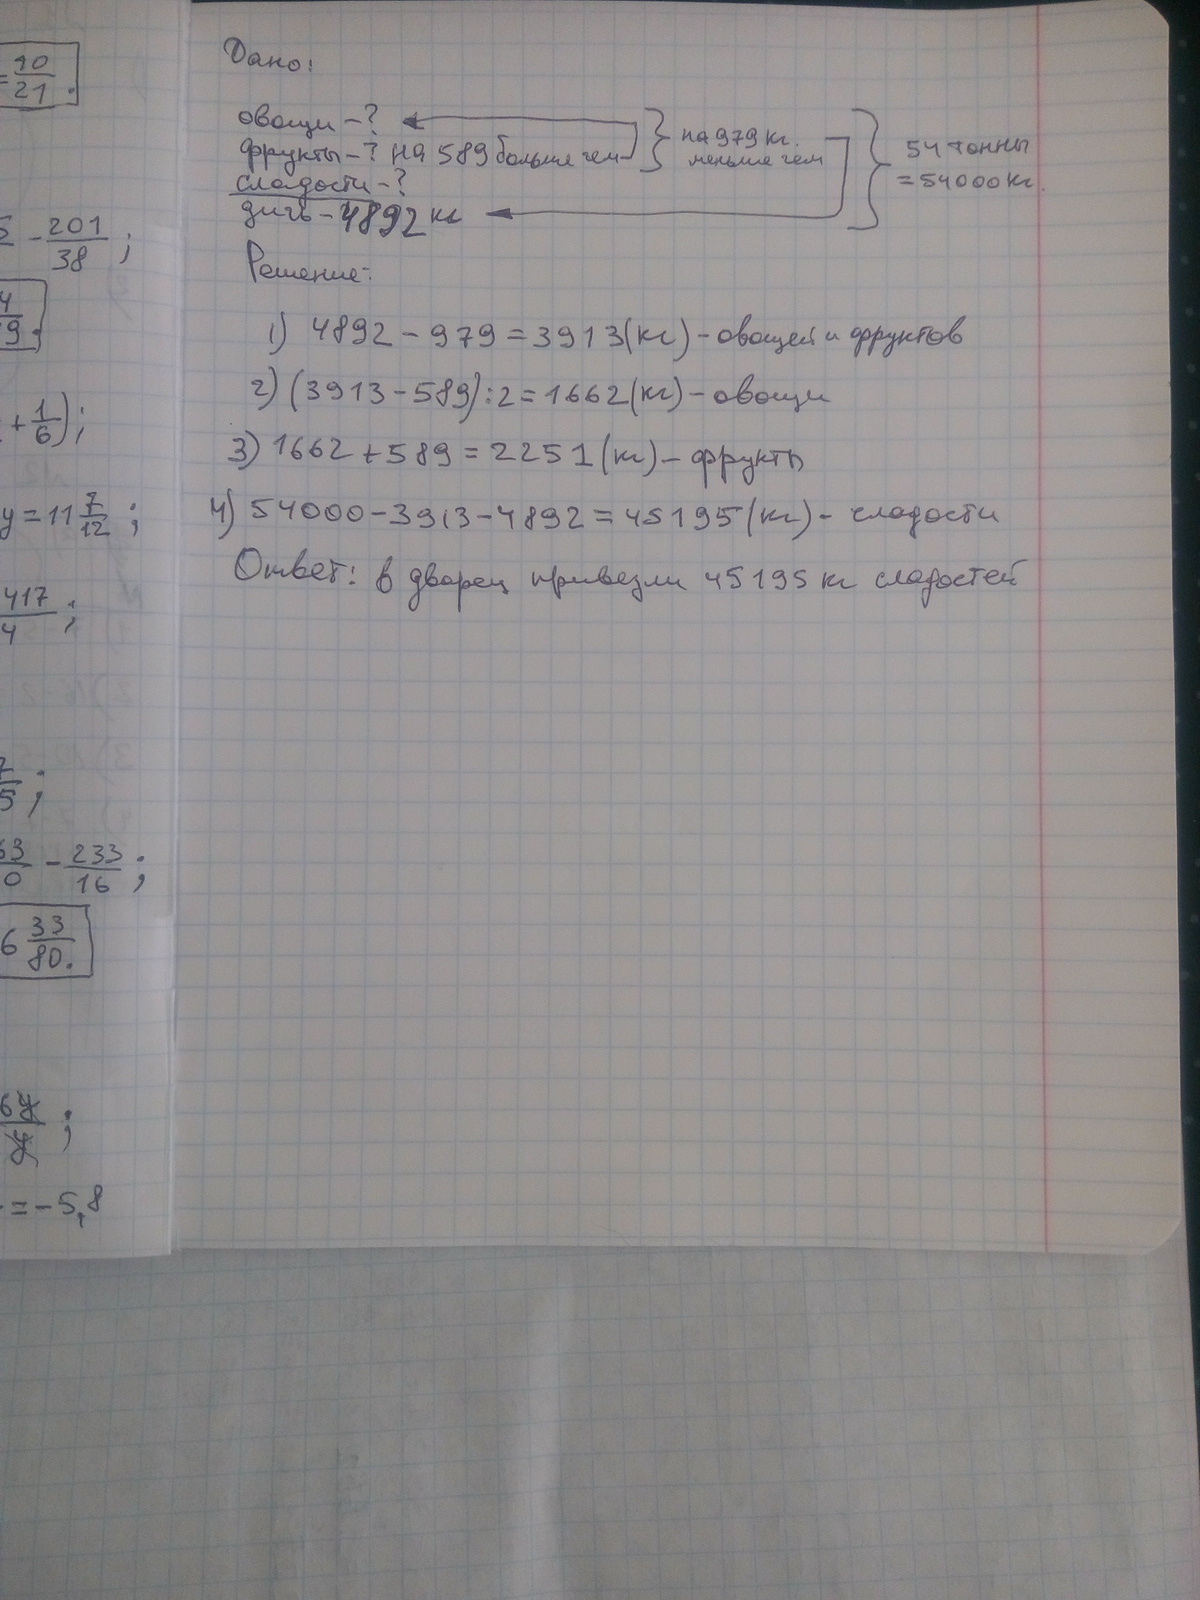 = 10/21.
5 - 201/38;
+ 1/6);
y = 11 7/12;
417/4;
- 233/16;
6 33/80.
= - 5,8
Дано:
овощи - ?
фрукты - ? на 589 больше чем
на 979 кг.
меньше чем
54 тонны
= 54000 кг.
сладости - ?
дичь - 4892 кг
Решение:
1) 4892 - 979 = 3913 (кг) - овощей и фруктов
2) (3913 - 589) : 2 = 1662 (кг) - овощи
3) 1662 + 589 = 2251 (кг) - фрукты
4) 54000 - 3913 - 4892 = 45195 (кг) - сладости
Ответ: в дворец привезли 45195 кг сладостей